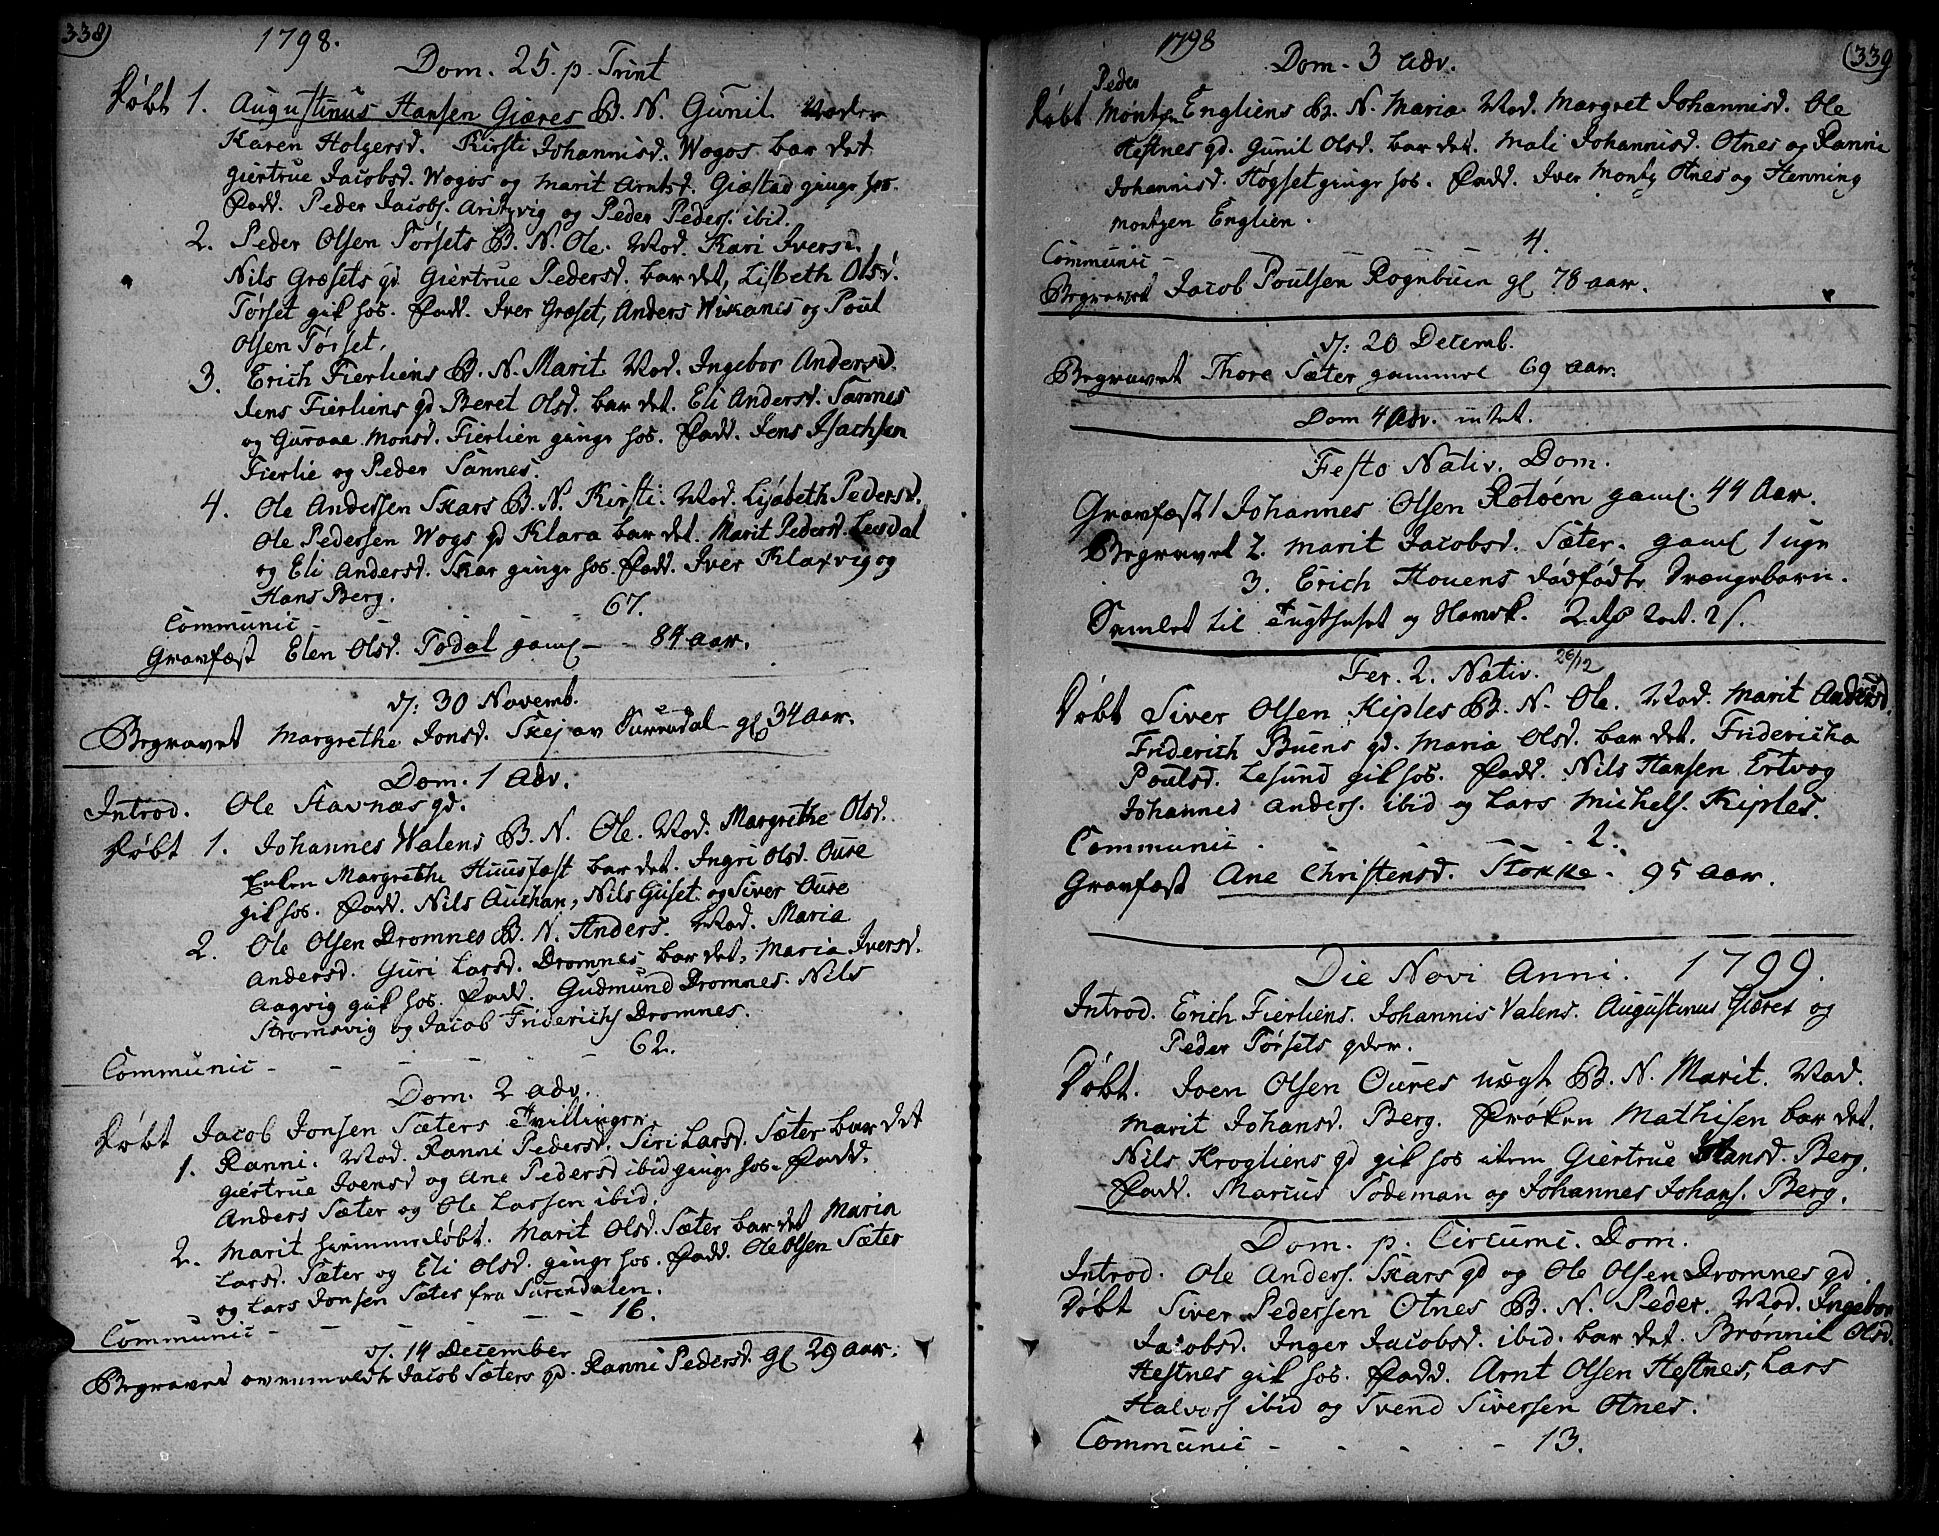 338)
1798.
Dom. 25. p. Trint
Døbt 1. Augustinus Hansen Giæres B. N. Gunil. Moder
Karen Holgersd. Kirsti Johannisd. Wogos bar det
Giertrue Jacobsd. Wogos og Marit Arntsd. Giæstad ginge hos.
Fadd. Peder Jacobs. og Peder Peders. ibid.
2. Peder Olsen Torsets B. N. Ole. Mod. Kari Iversd.
Nils Græsets qd Giertrue Pedersd. bar det, Lisbeth Olsd.
Torset gik hos. Fadd. Iver Græset, Anders Wikanes og Poul
Olsen Torset.
3. Erich Fierliens B. N. Marit. Mod. Ingebor Andersd.
Jens Fierliens qd Beret Olsd. bar det. Eli Andersd. Sannes
og Guroae Monsd. Fierlien ginge hos. Fadd. Jens Isachsen
Fierlie og Peder Sannes.
4. Ole Andersen Skars B. N. Kirsti. Mod. Lisabeth Pedersd.
Ole Pedersen Wogs qd Klara bar det. Marit Pedersd. Leesdal
og Eli Andersd. Skar ginge hos. Fadd. Iver Klaxvig og
Hans Berg.
Communic - - - 67.
Gravfæst Elen Olsd. Todal gaml - - 84 aar.
d. 30 Novemb.
Begravet Margrethe Jonsd. Skej av Surendal - gl 34 aar.
Dom. 1 Adv.
Introd. Ole Stavnæs qd.
Døbt 1. Johannes Walens B. N. Ole. Mod. Margrethe Olsd.
Enken Margrethe Huusfast bar det. Ingri Olsd. Oure
gik hos. Fadd. Nils Auchan, Nils Guset og Siver Oure
2. Ole Olsen Dromnes B. N. Anders. Mod. Maria
Andersd. Guri Larsd. Dromnes bar det, Maria Iversd.
Aagvig gik hos. Fadd. Gudmund Dromnes. Nils
Stromsvig og Jacob Friderichs Dromnes.
Communic - - - - 62.
Dom. 2 adv.
Døbt Jacob Jonsen Sæters Tvillinger
1. Ranni. Mod. Ranni Pedersd. Siri Larsd. Sæter bar det
Giertrue Ivensd og Ane Pedersd ibid ginge hos. Fadd.
Anders Sæter og Ole Larsen ibid.
2. Marit hiemmedøbt. Marit Olsd. Sæter bar det Maria
Larsd. Sæter og Eli Olsd. ginge hos. Fadd. Ole Olsen Sæter
og Lars Jonsen Sæter fra Surendalen.
Communic - - - - - 16.
d. 14 December
Begraved ovenmeldte Jacob Sæters qd. Ranni Pedersd. gl 29 aar.
(339
1798
Dom. 3 adv.
Peder
Døbt Montzen Engliens B. N. Maria. Mod. Margret Johannisd. Ole
Hestnes qd. Gunil Olsd. bar det. Mali Johannisd. Otnes og Ranni
Johannisd. Hogset ginge hos. Fadd. Iver Montz Otnes og Henning
Montzen Englien.
Communic - 4.
Begravet Jacob Poulsen Rognbuen gl 78 aar.
d. 20 Decemb.
Begravet Thore Sæter gammel 69 aar.
Dom 4 Adv. intet.
Festo Nativ. Dom.
Gravfæst 1 Johannes Olsen Rotøen gaml. 44 Aar.
Begravet 2. Marit Jacobsd. Sæter. gaml 1 uge
3. Erich Houens dødfødte Drængebarn.
Samlet til Tugthuset og
Fer. 2. Nativ. 26/12
Døbt Siver Olsen Kiples B. N. Ole. Mod. Marit Andersd.
Friderich Buens qd. Maria Olsd. bar det. Fridericha
Poulsd. Lesund gik hos. Fadd. Nils Hansen Ertvog
Johannes Anders. ibid og Lars Michels. Kiples.
Communic - - 2.
Gravfæst Ane Christensd. Stokke - 95 aar.
Die Novi Anni. 1799.
Introd. Erich Fierliens. Johannis Valens. Augustinus Giæres og
Peder Torsets qder.
Døbt. Joen Olsen Oures uægt B. N. Marit. Mod.
Marit Johansd. Berg. Frøken Mathisen bar det.
Nils Krogliens qd gik hos item Giertrue Hansd. Berg.
Fadd. Marius Sodeman og Johannes Johans. Berg.
Dom. p. Circumc. Dom.
Introd. Ole Anders. Skars qd og Ole Olsen Dromnes qd.
Døbt Siver Pedersen Otnes B. N. Peder. Mod. Ingebor
Jacobsd. Inger Jacobsd. ibid. bar det. Brønnil Olsd.
Hestnes gik hos. Fadd. Arnt Olsen Hestnes, Lars
Halvors ibid og Svend Siversen Otnes.
Communic - - - - 13.